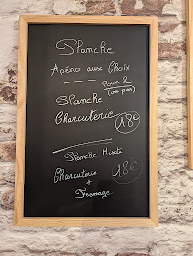 Planche
Apéro aux Choix
Pour 2
(ou pas)
Planche
Charcuterie 18€
Planche Mixte
Charcuterie 18€
+
Fromage